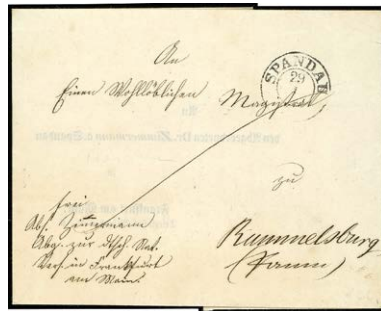 An
Einen Wohllöblichen Magistrat
SPANDAU
29
1
zu
Rummelsburg
(Pomm)
frei
Abs. Zimmermann
Abg. zur dtsch Nat.
Vers. in Frankfurt
am Main.